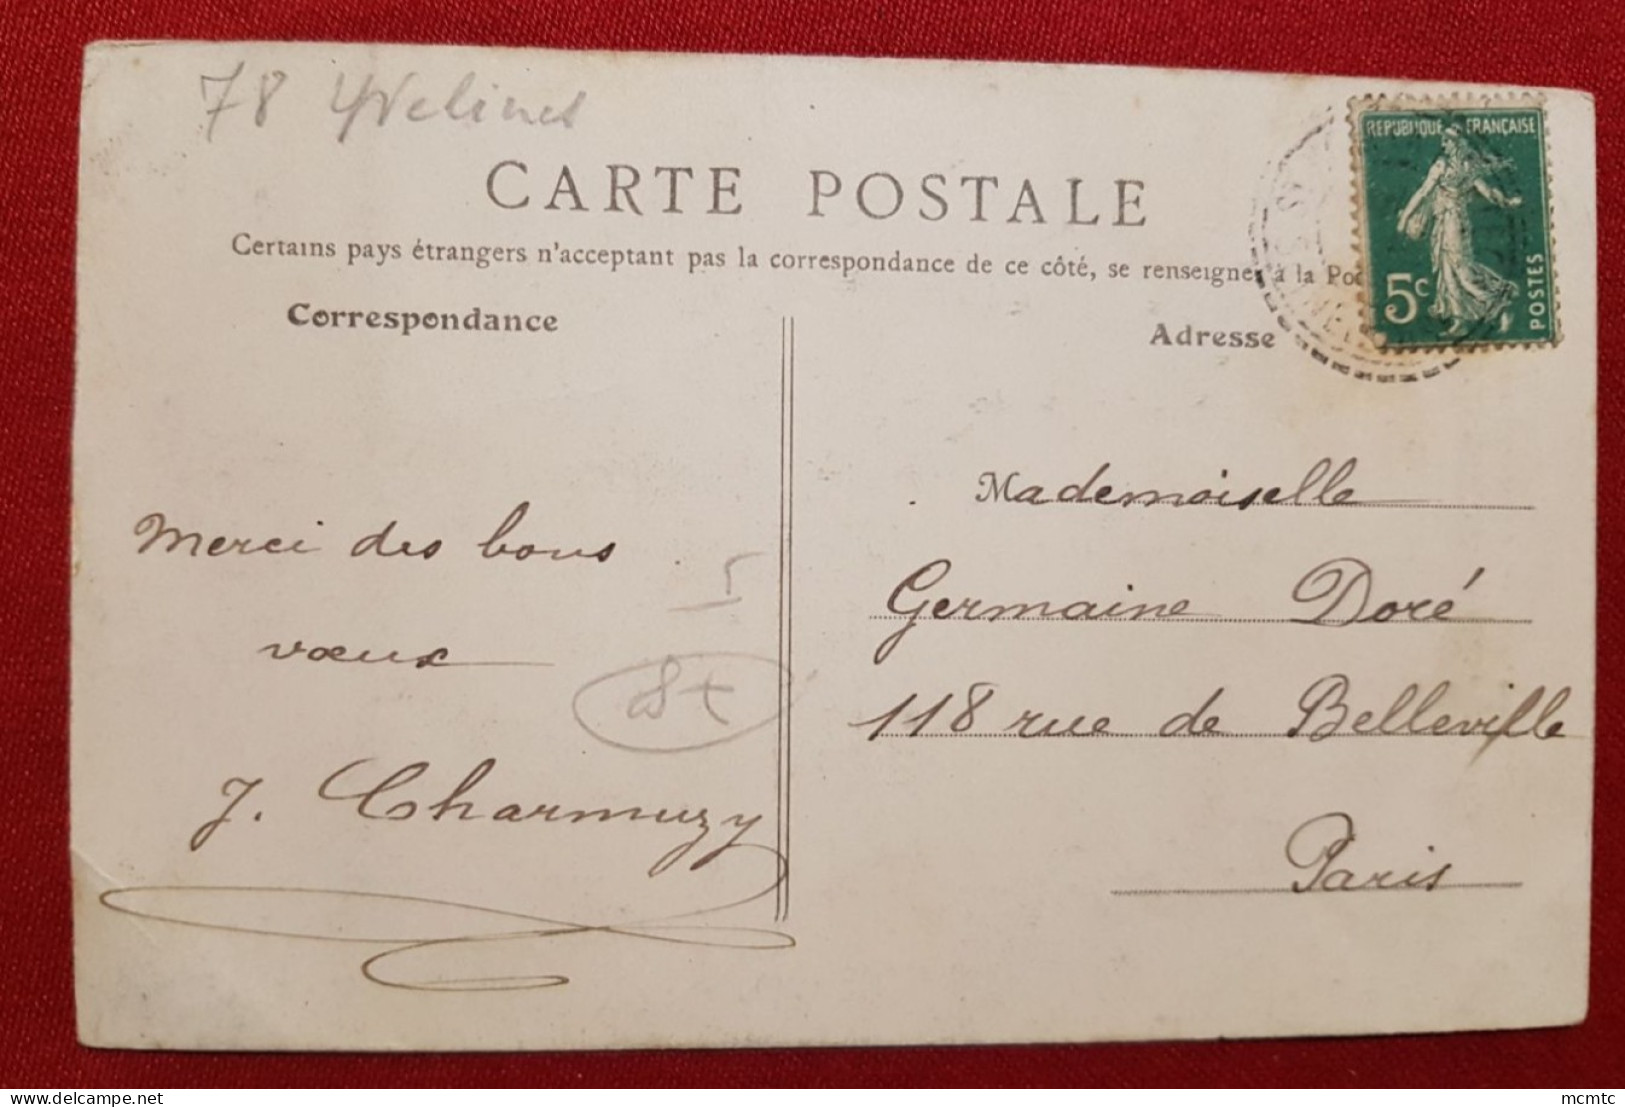 78 Yvelines
CARTE POSTALE
Certains pays étrangers n'acceptant pas la correspondance de ce côté, se renseigner à la Po
Correspondance
Adresse
REPUBLIQUE FRANÇAISE
5c
POSTES
Merci des bons
vœux
J. Charmuzy
5
Mademoiselle
Germaine Doré
118 rue de Belleville
Paris
mcmtc